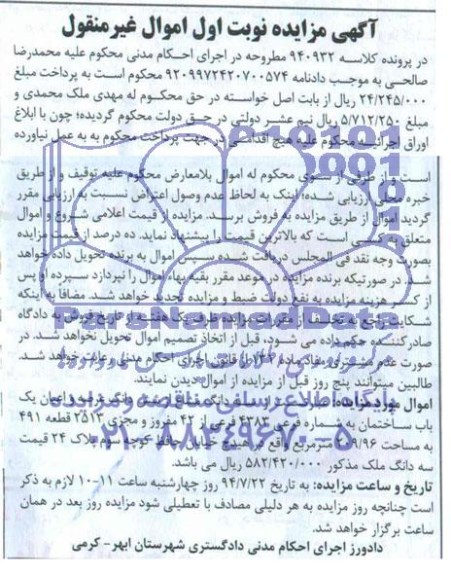 آگهی مزایده نوبت اول اموال غیرمنقول
در پرونده کلاسه ۹۴۰۹۳۲ مطروحه در اجرای احکام مدنی محکوم علیه محمدرضا
صالحی به موجب دادنامه ۹۲۰۹۹۷۲۴۲۰۷۰۰۵۷۴ محکوم است به پرداخت مبلغ
۲۴/۲۴۵/۰۰۰ ریال از بابت اصل خواسته در حق محکوم له مهدی ملک محمدی و
مبلغ ۵/۷۱۲/۲۵۰ ریال نیم عشر دولتی در حق دولت محکوم گردیده؛ چون با ابلاغ
اوراق اجرائیه محکوم علیه هیچ اقدامی در جهت پرداخت محکوم به به عمل نیاورده
است و از طرفی از سوی محکوم له اموال بلامعارض محکوم علیه توقیف و از طریق
خبره محلی ارزیابی شده؛ اینک به لحاظ عدم وصول اعتراض نسبت به ارزیابی مقرر
گردید اموال از طریق مزایده به فروش برسد. مزایده از قیمت اعلامی شروع و اموال
متعلق به کسی است که بالاترین قیمت را پیشنهاد نماید. ده درصد از قیمت مزایده
بصورت وجه نقد فی المجلس دریافت شده سپس اموال به برنده تحویل داده خواهد
شد. در صورتیکه برنده مزایده در موعد مقرر بقیه بهاء اموال را نپردازد سپرده او پس
از کسر هزینه مزایده به نفع دولت ضبط و مزایده تجدید خواهد شد. مضافاً به اینکه
شکایت راجع به تخلف از مقررات مزایده ظرف یک هفته از تاریخ فروش به دادگاه
صادرکننده حکم داده می شود، قبل از اتخاذ تصمیم اموال تحویل نخواهد شد. در
صورت عدم مشتری مفاد ماده از قانون اجرای احکام مدنی رعایت خواهد شد.
طالبین میتوانند پنج روز قبل از مزایده از اموال دیدن نمایند.
اموال مورد مزایده: سه دانگ عرصه و اعیان یک
باب ساختمان به شماره فرعی ۴۳۸۳ فرعی از ۴۲ مفروز و مجزی ۲۵۱۳ قطعه ۴۹۱
به مساحت ۲۰۹/۹۶ مترمربع واقع در خیابان حافظ کوچه سوم پلاک ۲۴ قیمت
سه دانگ ملک مذکور ۵۸۲/۴۲۰/۰۰۰ ریال می باشد.
تاریخ و ساعت مزایده: به تاریخ ۹۴/۷/۲۲ روز چهارشنبه ساعت ۱۱-۱۰ لازم به ذکر
است چنانچه روز مزایده به هر دلیلی مصادف با تعطیلی شود مزایده روز بعد در همان
ساعت برگزار خواهد شد.
دادورز اجرای احکام مدنی دادگستری شهرستان ابهر- کرمی
ParsNamadData
پایگاه اطلاع رسانی مناقصه و مزایده
۰۲۱-۸۸۳۴۹۶۷۰-۵